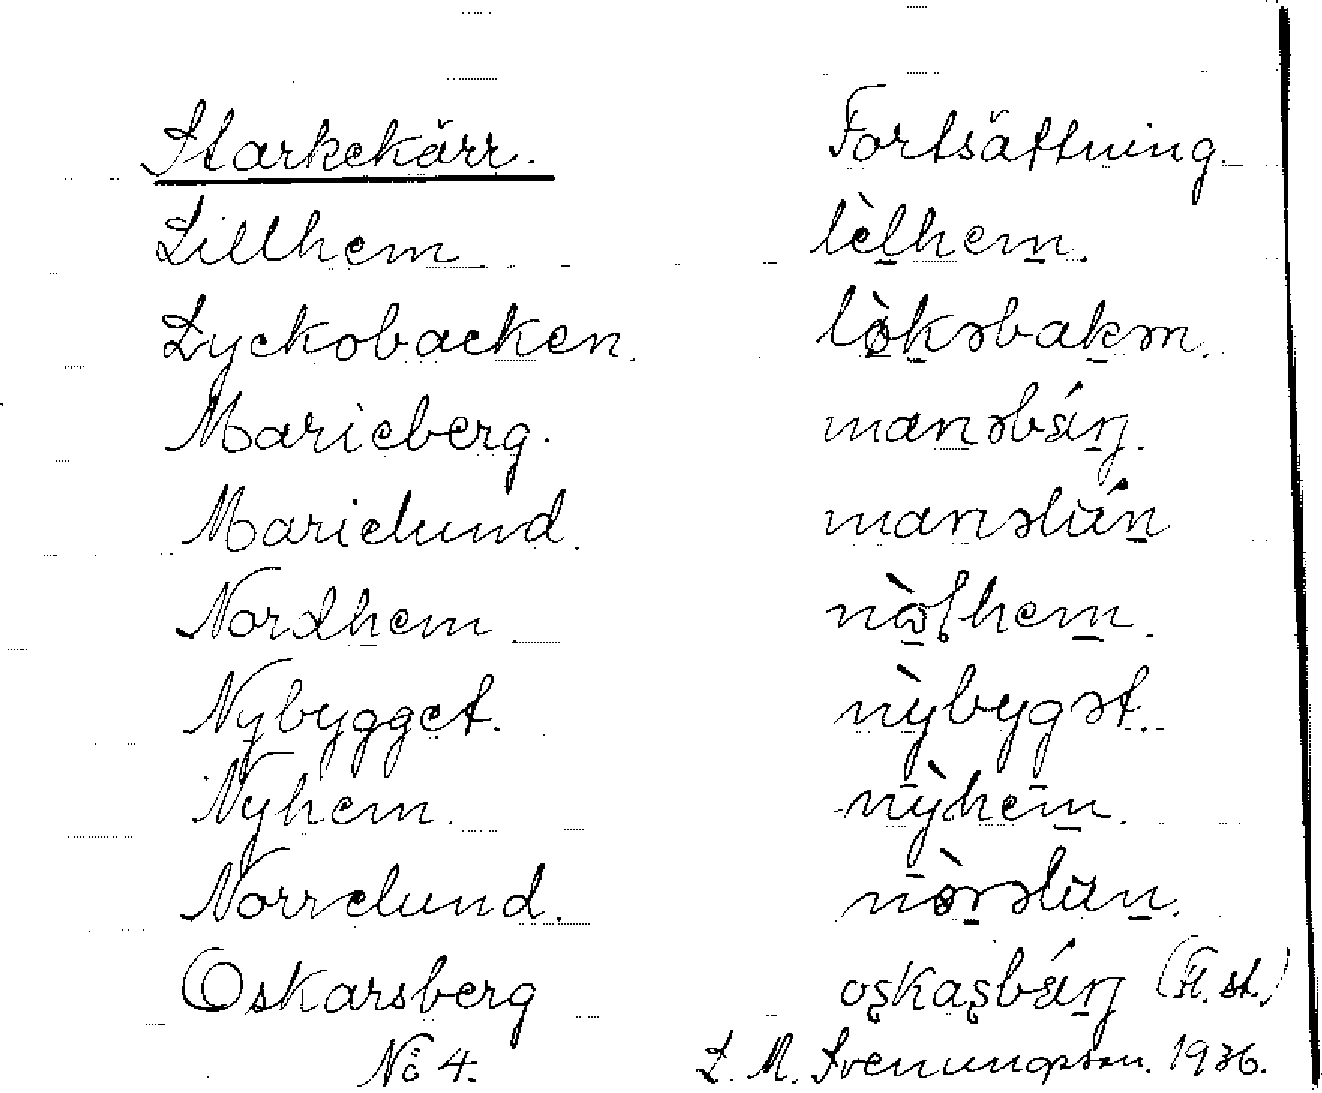 Starkekärr. Fortsättning.
Lillhem lèlhem.
Lyckobacken. lòkəbakən.
Marieberg. marıəbárj.
Marielund. marıəlún
Nordhem nòlhem.
Nybygget. nỳbygət.
Nyhem. nỳhem.
Norrelund. nòrəlun.
Oskarsberg oskasbárj (Fl. st.)
No 4. L. M. Svenungsson. 1936.